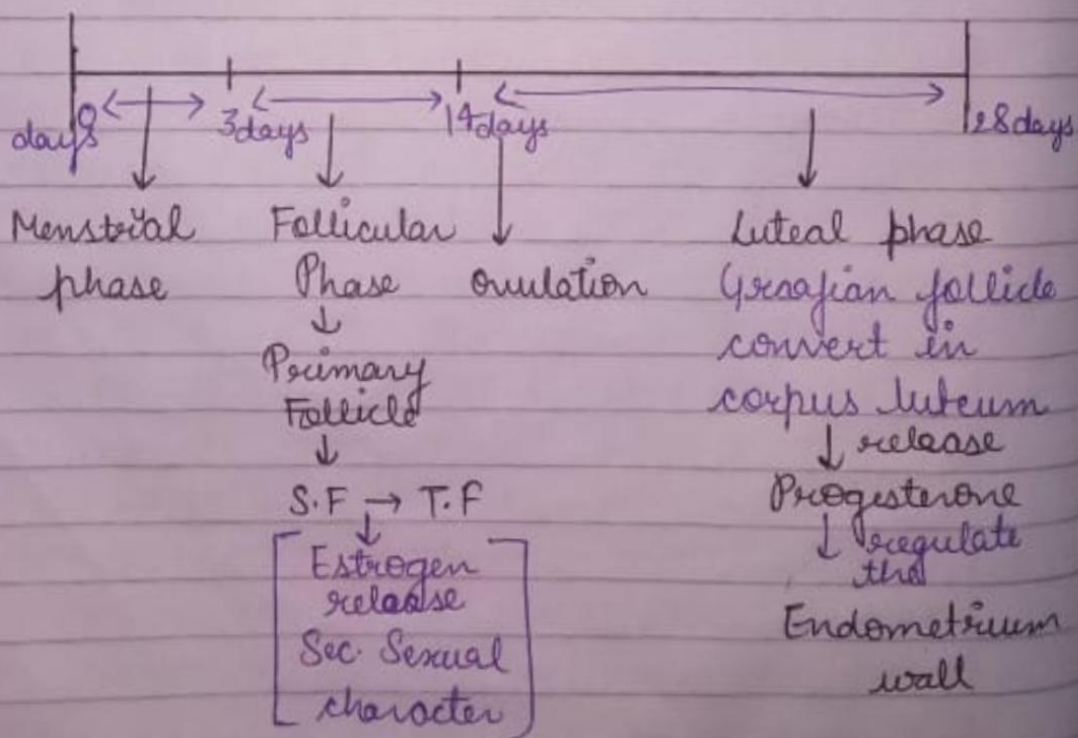 days 0
3days
14days
28days
Menstrual
phase
Follicular
Phase
↓
Primary
Follicle
↓
S.F → T.F
↓
Estrogen
release
Sec. Sexual
character
ovulation
Luteal phase
Graafian follicle
convert in
corpus luteum
↓ release
Progesterone
↓ regulate
the
Endometrium
wall